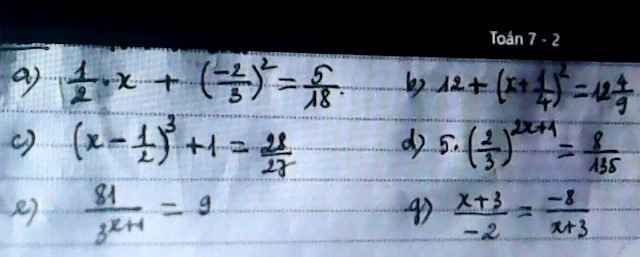 Toán 7 - 2
a) 1/2 · x + (-2/3)^2 = 5/18. b) 12 + (x + 1/4)^2 = 12 4/9
c) (x - 1/2)^3 + 1 = 28/27 d) 5 · (2/3)^{2x+1} = 8/135
e) 81/3^{x+1} = 9 g) (x+3)/-2 = -8/(x+3)